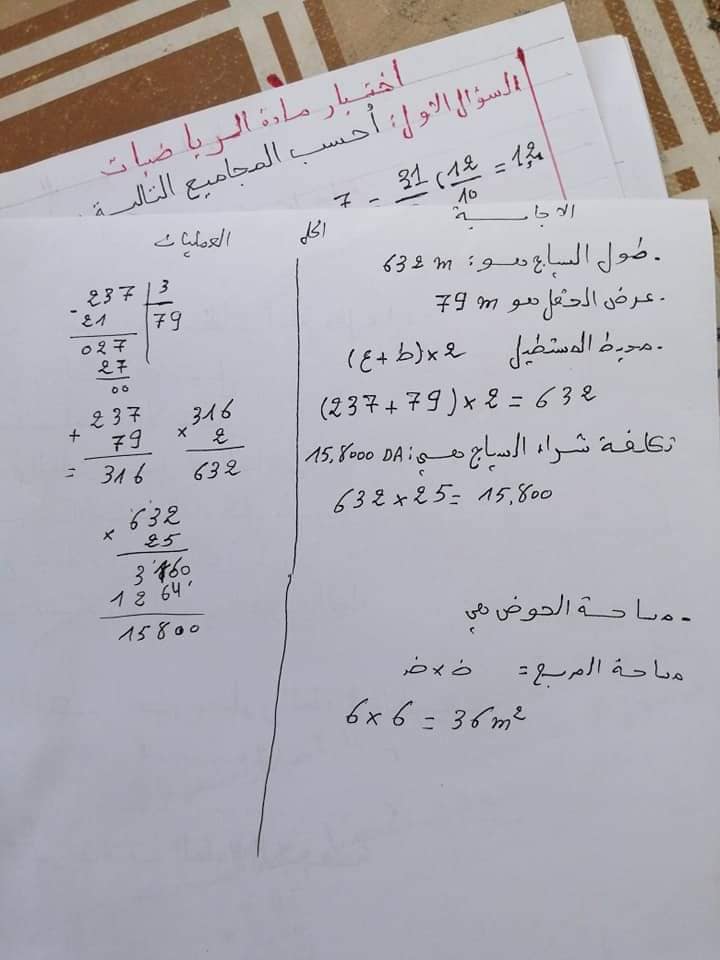 اختبار مادة الرياضيات
السؤال الاول: أحسب المجاميع التالية
7 = 21 ( 12/10 = 1,2
الاجابة
الحل
العمليات
. طول السياج هو: 632 m
. عرض الحقل هو 79 m
. محيط المستطيل (ط+ع)×2
(237+79)×2=632
تكلفة شراء السياج هي: 15,8000 DA
632×25=15,800
. مساحة الحوض هي
مساحة المربع = ض×ض
6×6=36m²
- 237 | 3
21 | 79
027
27
00
237
+ 79
= 316
316
× 2
632
632
× 25
3160
1264
15800